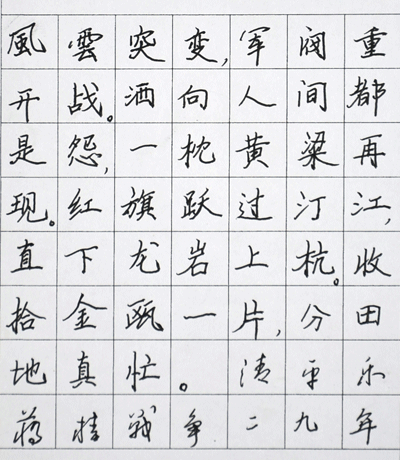 風雲突变,军阀重
开战。洒向人间都
是怨,一枕黄粱再
现。红旗跃过汀江,
直下龙岩上杭。收
拾金瓯一片,分田
地真忙。清平乐
蒋桂戰争二九年